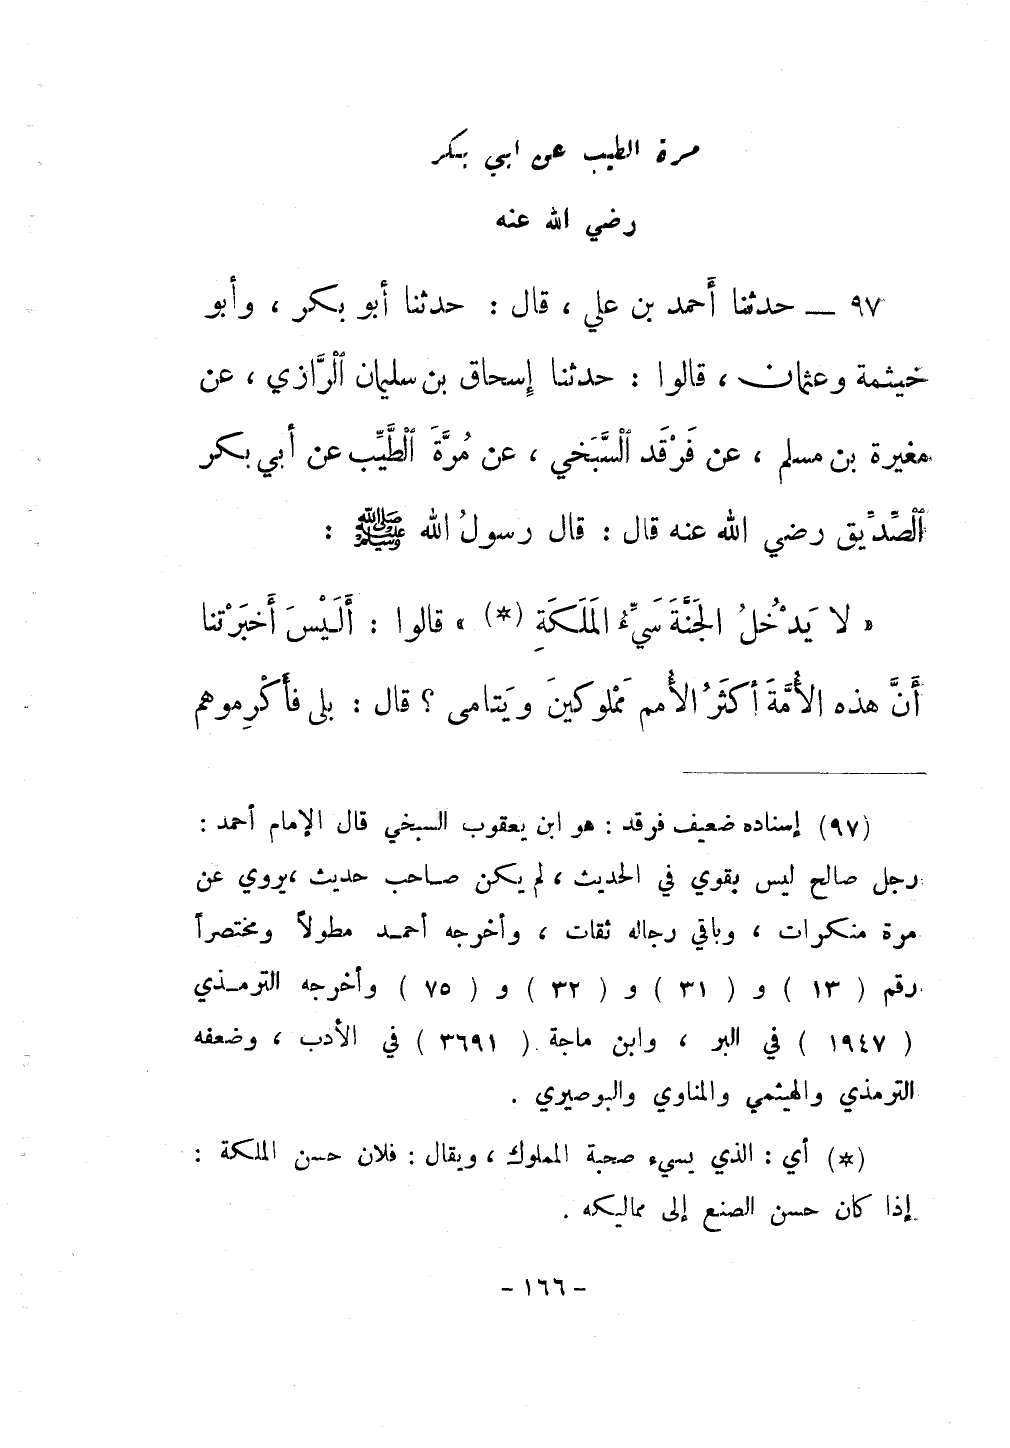 مرة الطيب عن ابي بكر
رضي الله عنه
٩٧ ـ حدثنا أَحمد بن علي ، قال : حدثنا أبو بكر ، وأبو
خيثمة وعثمان ، قالوا : حدثنا إسحاق بن سليمان الرَّازي ، عن
مغيرة بن مسلم ، عن فَرْقَد السَّبَخي ، عن مُرَّةَ الطَّيِّب عن أبي بكر
الصِّدِّيق رضي الله عنه قال : قال رسولُ الله ﷺ :
« لا يَدْخُلُ الجَنَّةَ سَيِّءُ المَلَكَةِ (*) » قالوا : أَلَيْسَ أَخبَرْتنا
أَنَّ هذه الأُمَّةَ أكثَرُ الأُمم مَمْلوكينَ ويَتامى ؟ قال : بلى فأَكْرِموهم
(٩٧) إسناده ضعيف فرقد : هو ابن يعقوب السبخي قال الإمام أحمد :
رجل صالح ليس بقوي في الحديث ، لم يكن صاحب حديث ، يروي عن
مرة منكرات ، وباقي رجاله ثقات ، وأخرجه أحمد مطولاً ومختصراً
رقم ( ١٣ ) و ( ٣١ ) و ( ٣٢ ) و ( ٧٥ ) وأخرجه الترمذي
( ١٩٤٧ ) في البر ، وابن ماجة ( ٣٦٩١ ) في الأدب ، وضعفه
الترمذي والهيثمي والمناوي والبوصيري .
(*) أي : الذي يسيء صحبة المملوك ، ويقال : فلان حسن الملكة :
إذا كان حسن الصنع إلى مماليكه .
- ١٦٦ -